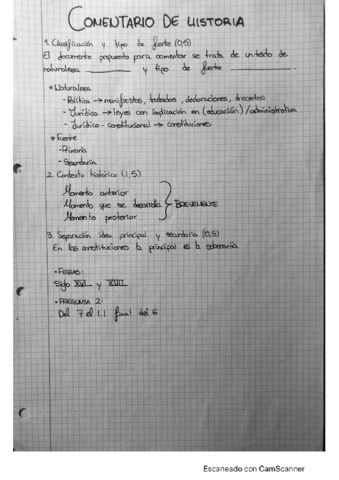 COMENTARIO DE HISTORIA
1. Clasificación y tipo de fuente (0,5)
El documento propuesto para comentar se trata de un texto de
naturaleza ________ y tipo de fuente ________.
* Naturaleza
- Política → manifiestos, tratados, declaraciones, decretos
- Jurídica → leyes con indicación en (educación)/administrativa
- Jurídico - constitucional → constituciones
* Fuente
- Primaria
- Secundaria
2. Contexto histórico (1,5)
Momento anterior
Momento que se desarrolla } BREVEMENTE
Momento posterior
3. Separación idea principal y secundaria (0,5)
En las constituciones la principal es la soberanía
• FECHAS:
Siglo XVI y XVII
• PREGUNTA 2:
Del 7 el 1.1 final del 6
Escaneado con CamScanner